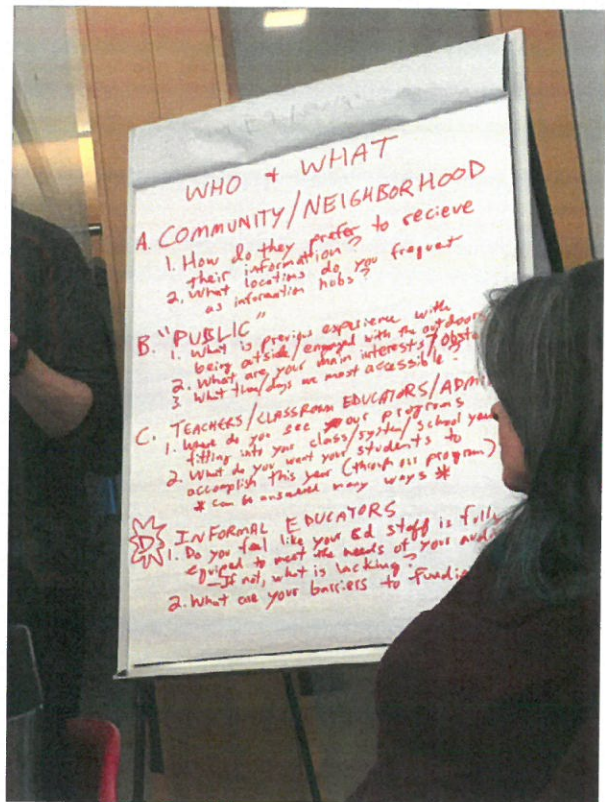 WHO + WHAT
A. COMMUNITY/NEIGHBORHOOD
1. How do they prefer to recieve
their information?
2. What locations do you frequent
as information hubs?
B. "PUBLIC"
1. What is previous experience with
being outside/engaged with the outdoors
2. What are your main interests?
3. What times/days are most accessible?
C. TEACHERS/CLASSROOM EDUCATORS/
1. Where do you see our programs
fitting into your class/system/school year
2. What do you want your students to
accomplish this year (through our program)
* can be answered many ways *
D INFORMAL EDUCATORS
1. Do you feel like your Ed staff is fully
equiped to meet the needs of your
- If not, what is lacking?
2. What are your barriers to